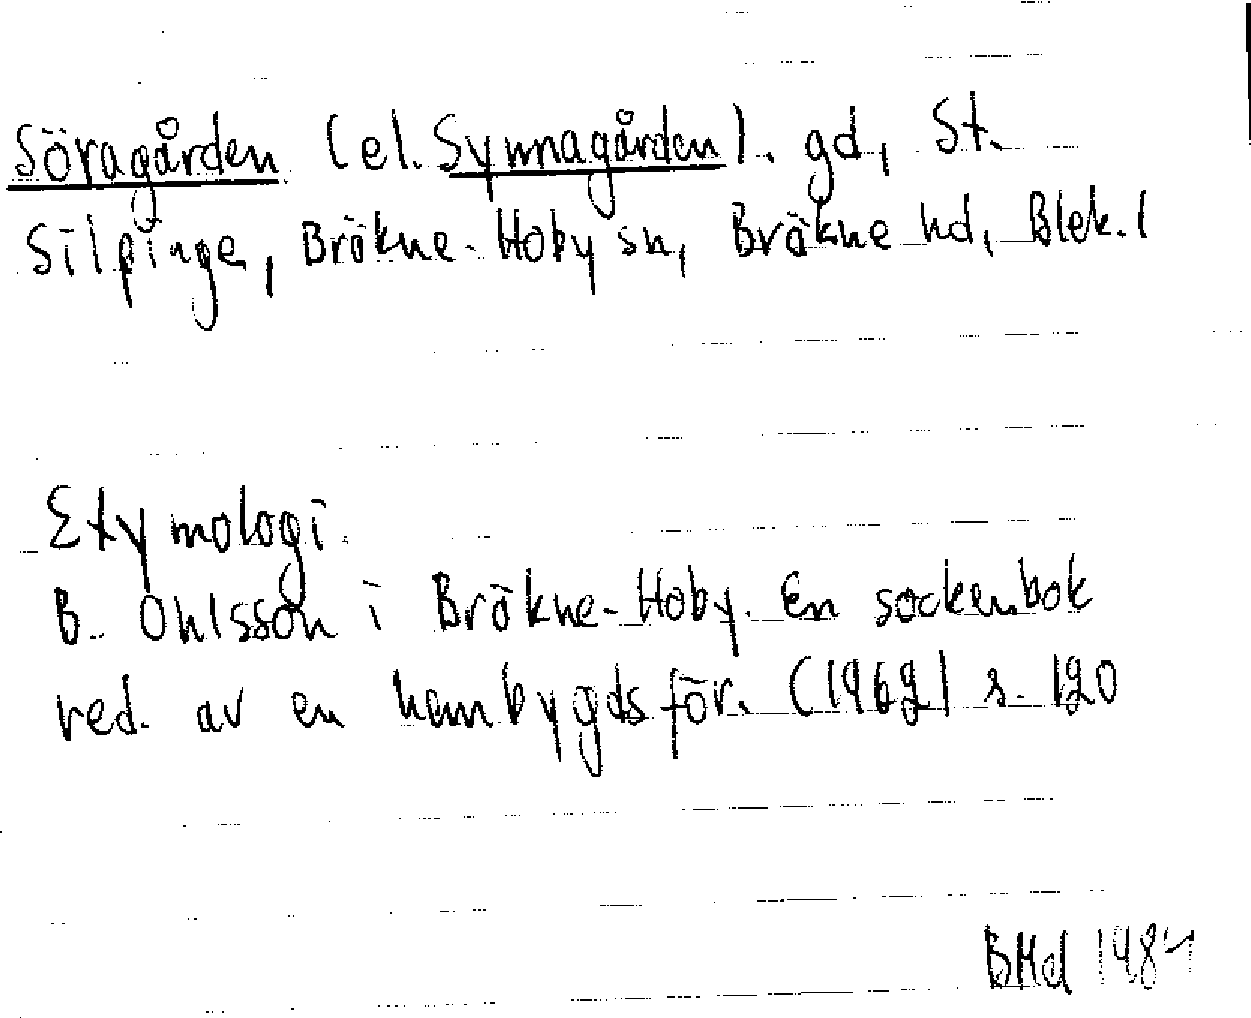 Söragården (el. Synnagården). gd, St.
Silpinge, Bräkne-Hoby sn, Bräkne hd, Blek. l
Etymologi.
B. Ohlsson i Bräkne-Hoby. En sockenbok
red. av en hembygdsför. (1962) s. 120
BHd